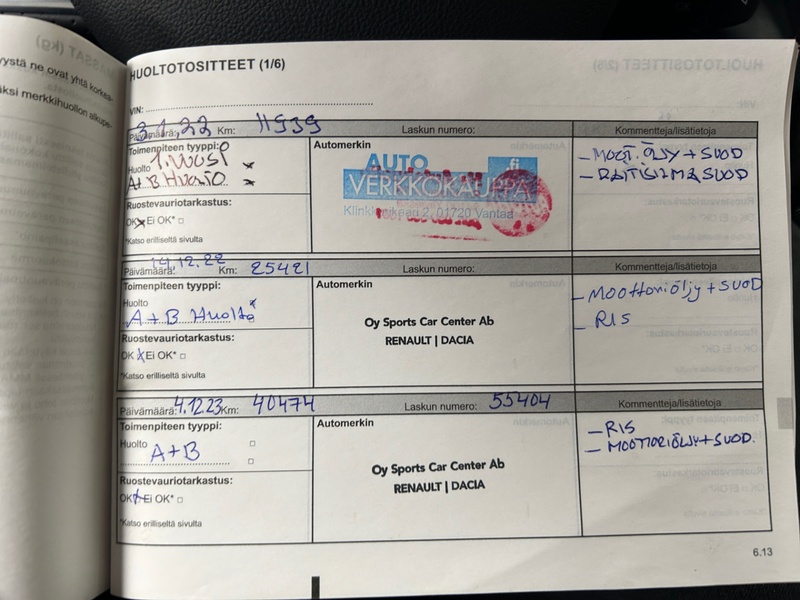 MASSAT (kg)
ystä ne ovat yhtä korkea-
iksi merkkihuollon alkupe-
HUOLTOTOSITTEET (1/6)
HUOLTOTOSITTEET (2/6)
VIN:
Päivämäärä: 3.1.22 Km: 11939 Laskun numero: Kommentteja/lisätietoja
Toimenpiteen tyyppi:
Huolto 1. VUOSI
A+B HUOLTO
Ruostevauriotarkastus:
OK Ei OK*
*Katso erilliseltä sivulta
Automerkin
AUTO
VERKKOKAUPPA
.fi
Klinkkerikaari 2, 01720 Vantaa
- MOOT. ÖLJY + SUOD
- RAITISILMA SUOD
Päivämäärä: 14.12.22 Km: 25421 Laskun numero: Kommentteja/lisätietoja
Toimenpiteen tyyppi:
Huolto
A+B Huolto
Ruostevauriotarkastus:
OK Ei OK*
*Katso erilliseltä sivulta
Automerkin
Oy Sports Car Center Ab
RENAULT | DACIA
- Moottoriöljy + SUOD
- RIS
Päivämäärä: 4.12.23 Km: 40474 Laskun numero: 55404 Kommentteja/lisätietoja
Toimenpiteen tyyppi:
Huolto
A+B
Ruostevauriotarkastus:
OK Ei OK*
*Katso erilliseltä sivulta
Automerkin
Oy Sports Car Center Ab
RENAULT | DACIA
- RIS
- MOOTTORIÖLJY + SUOD.
6.13